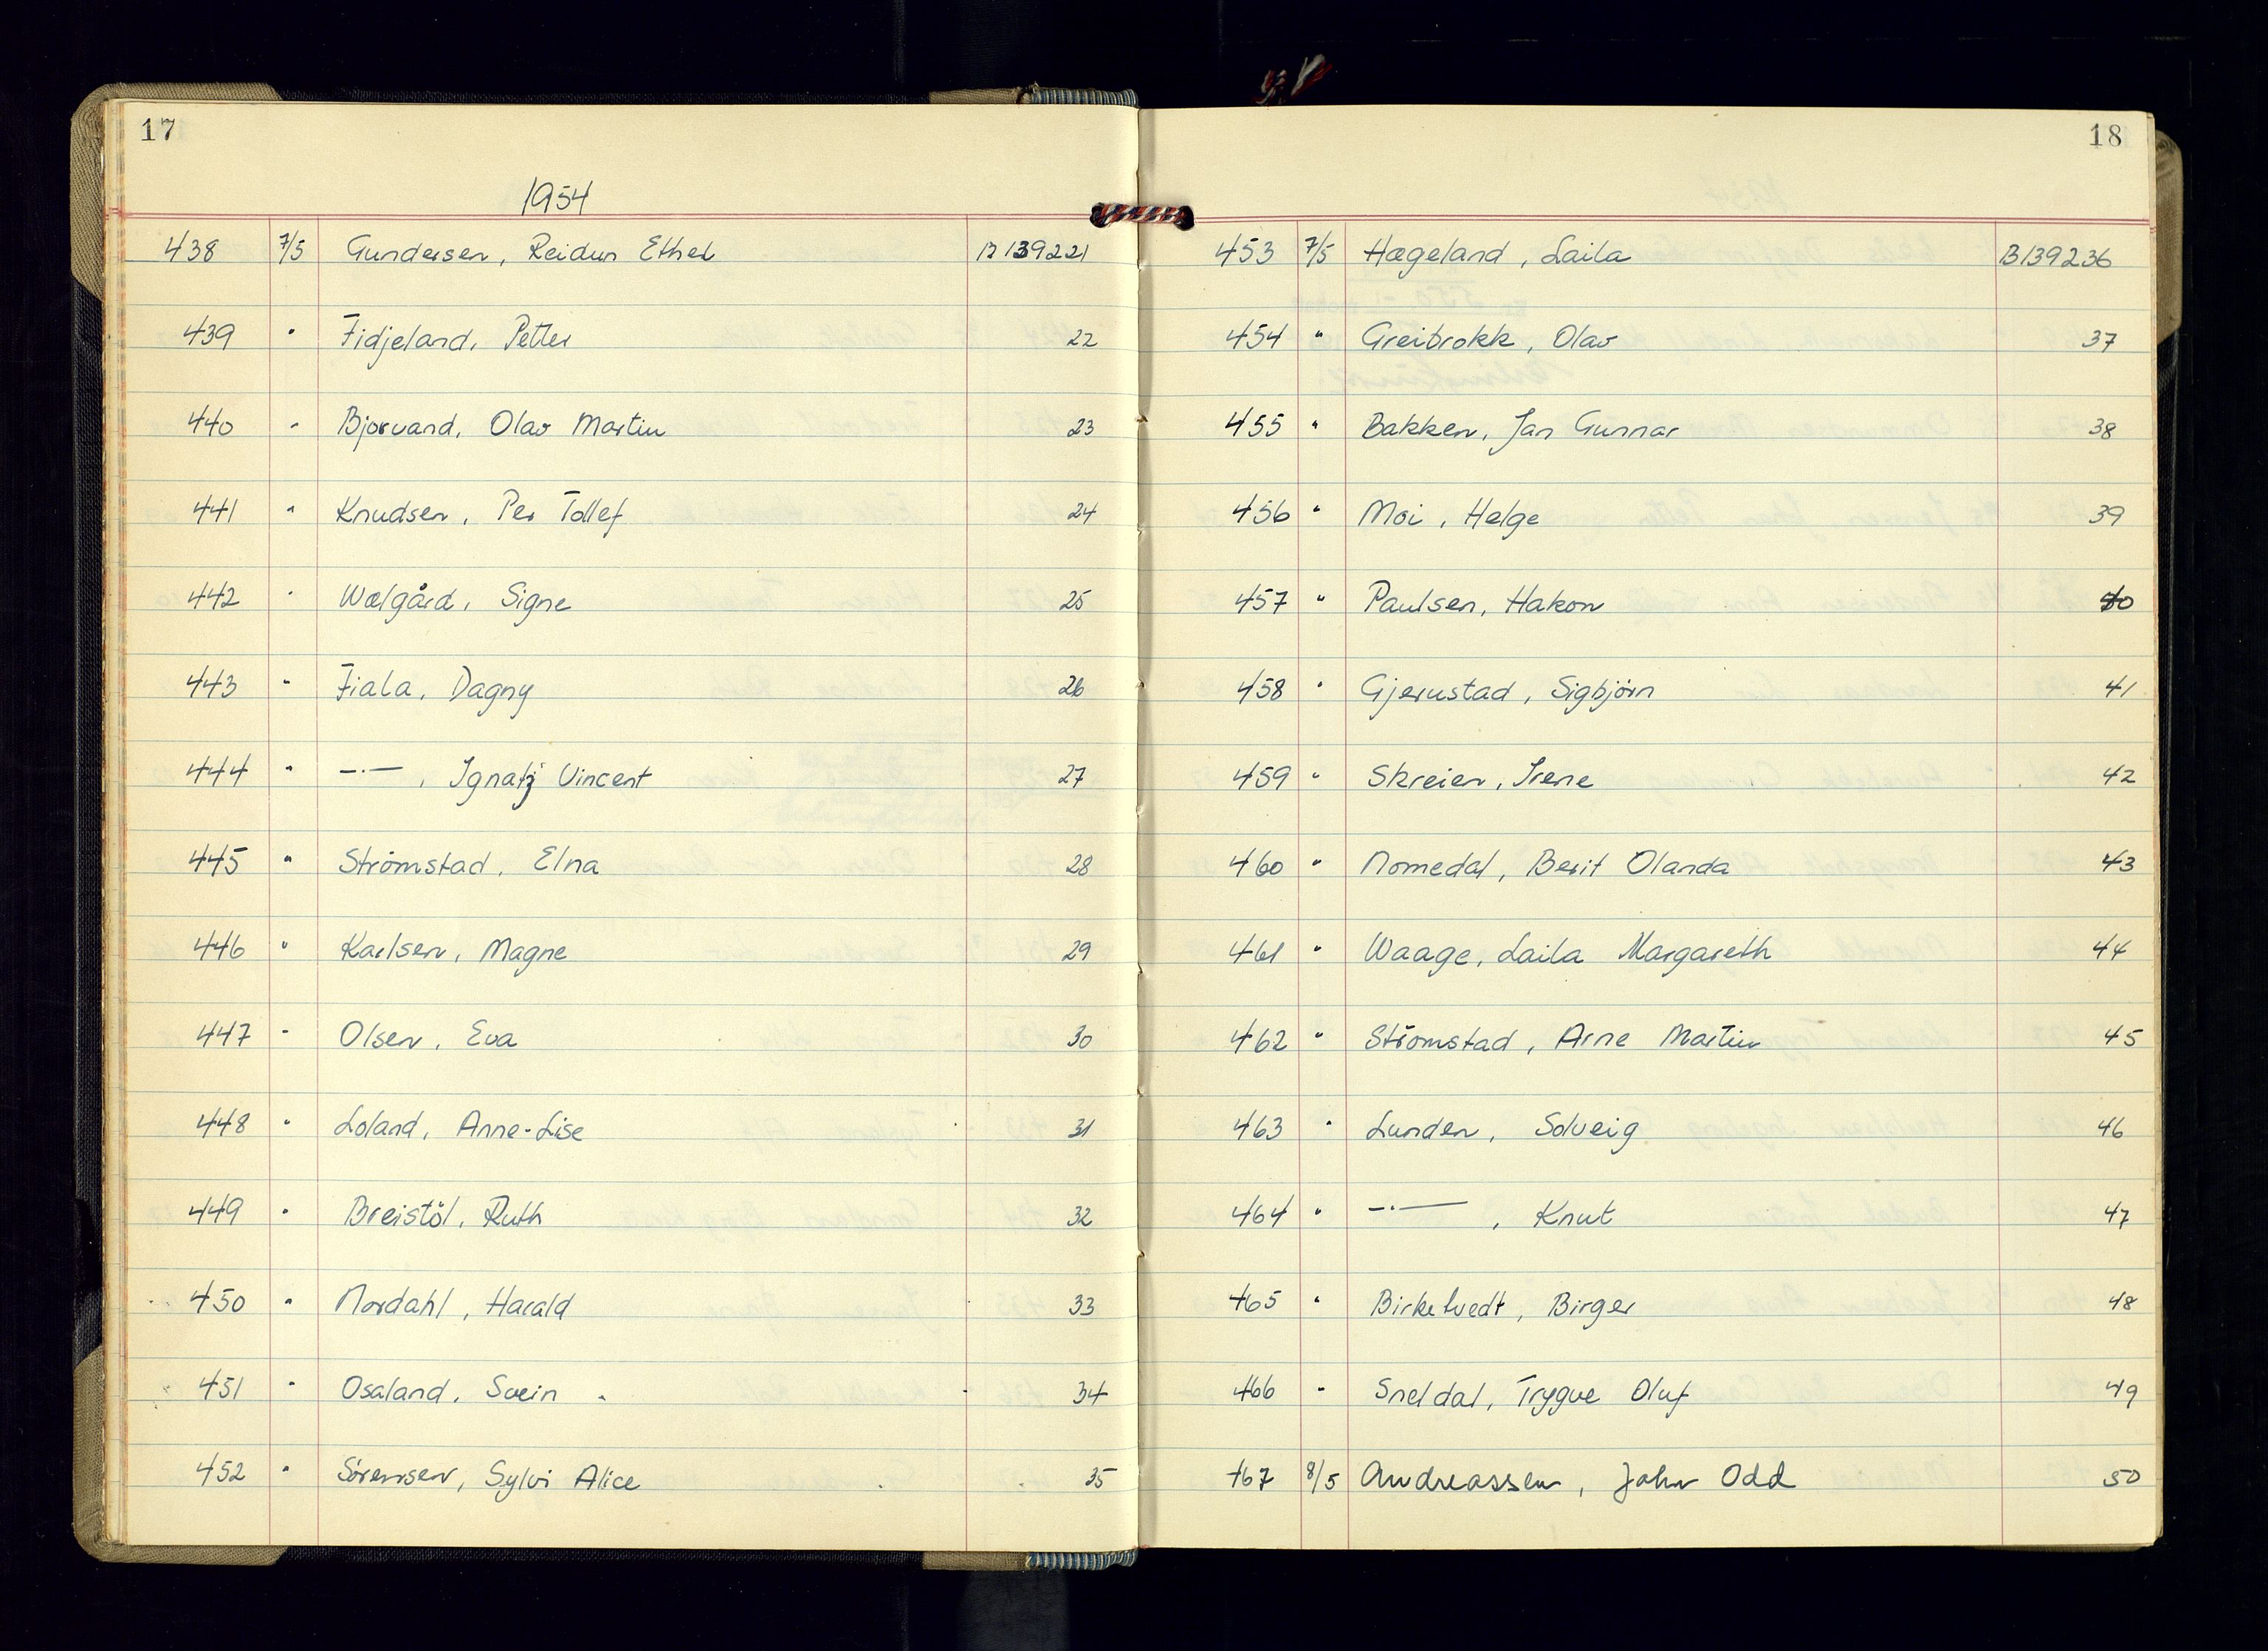 17
1954
438 7/5 Gundersen, Reidun Ethel B 139221
439 " Fidjeland, Petter 22
440 " Bjorvand, Olav Martin 23
441 " Knudsen, Per Tollef 24
442 " Wælgård, Signe 25
443 " Fiala, Dagny 26
444 " —·—, Ignatz Vincent 27
445 " Strömstad, Elna 28
446 " Karlsen, Magne 29
447 " Olsen, Eva 30
448 " Loland, Anne-Lise 31
449 " Breistöl, Ruth 32
450 " Nordahl, Harald 33
451 " Osaland, Svein 34
452 " Sörensen, Sylvi Alice 35
18
453 7/5 Hægeland, Laila B139236
454 " Greibrokk, Olav 37
455 " Bakken, Jan Gunnar 38
456 " Moi, Helge 39
457 " Paulsen, Hakon 40
458 " Gjerustad, Sigbjörn 41
459 " Skreien, Irene 42
460 " Nomedal, Berit Olanda 43
461 " Waage, Laila Margareth 44
462 " Strömstad, Arne Martin 45
463 " Lunden, Solveig 46
464 " —·—, Knut 47
465 " Birketvedt, Birger 48
466 " Sneldal, Trygve Oluf 49
467 8/5 Andreassen, John Odd 50